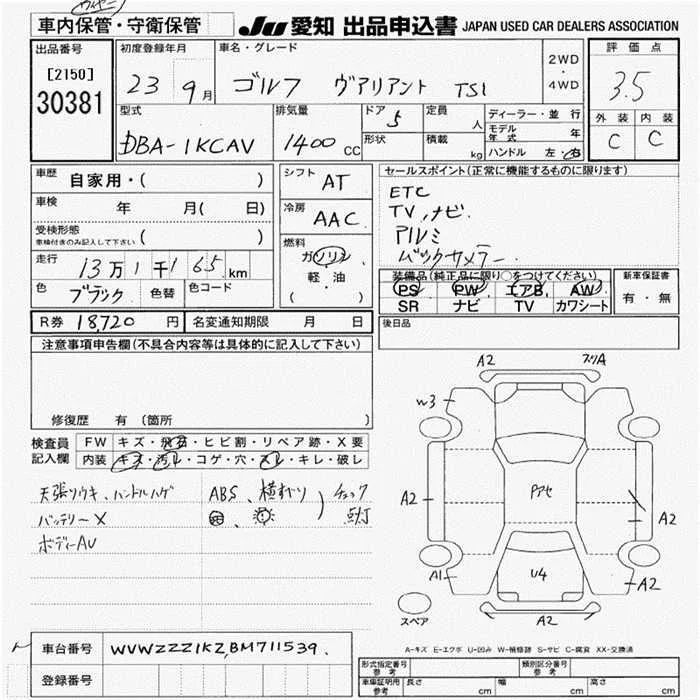 車内保管・守衛保管
JU 愛知 出品申込書 JAPAN USED CAR DEALERS ASSOCIATION
出品番号
[2150]
30381
初度登録年月
23 9月
車名・グレード
ゴルフ ヴァリアント TSI
2WD
・
4WD
評価点
3.5
外装 内装
C C
型式
DBA-1KCAV
排気量
1400 CC
ドア 5
形状
定員 人
積載 kg
ディーラー・並行
モデル年式 年
ハンドル 左・右
車歴 自家用・( )
車検 年 月( 日)
受検形態
車検付きのみ記入して下さい ( )
走行 13万1千165km
色 ブラック 色替 色コード
シフト AT
冷房 AAC
燃料
ガソリン
軽・油
( )
セールスポイント(正常に機能するものに限ります)
ETC
TV,ナビ
アルミ
バックカメラー
装備品(純正品に限り○をつけてください)
PS PW エアB AW
SR ナビ TV カワシート
新車保証書
有・無
R券 18,720 円 名変通知期限 月 日
後日品
注意事項申告欄(不具合内容等は具体的に記入して下さい)
修復歴 有 (箇所 )
検査員記入欄
FW キズ・飛石・ヒビ割・リペア跡・X要
内装 キズ・汚レ・コゲ・穴・スレ・キレ・破レ
天張ソウキ、ハンドルハゲ
バッテリーX
ボディーAU
ABS、横すべり
チェック
点灯
A2
w3
A2
Pアセ
A2
A1
U4
A2
A2
スペア
A-キズ E-エクボ U-凹み W-補修跡 S-サビ C-腐食 XX-交換済
車台番号 WVWZZZ1KZ,BM711539.
登録番号
形式指定番号 参考
類別区分番号 参考
車庫証明用 参考 長さ cm 幅 cm 高さ cm